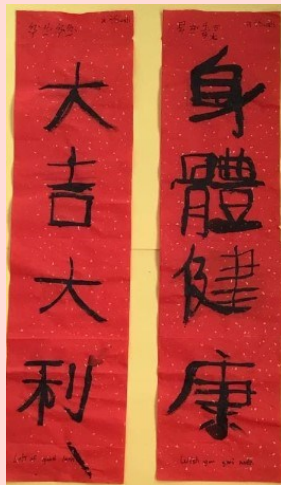 身體健康
大吉大利